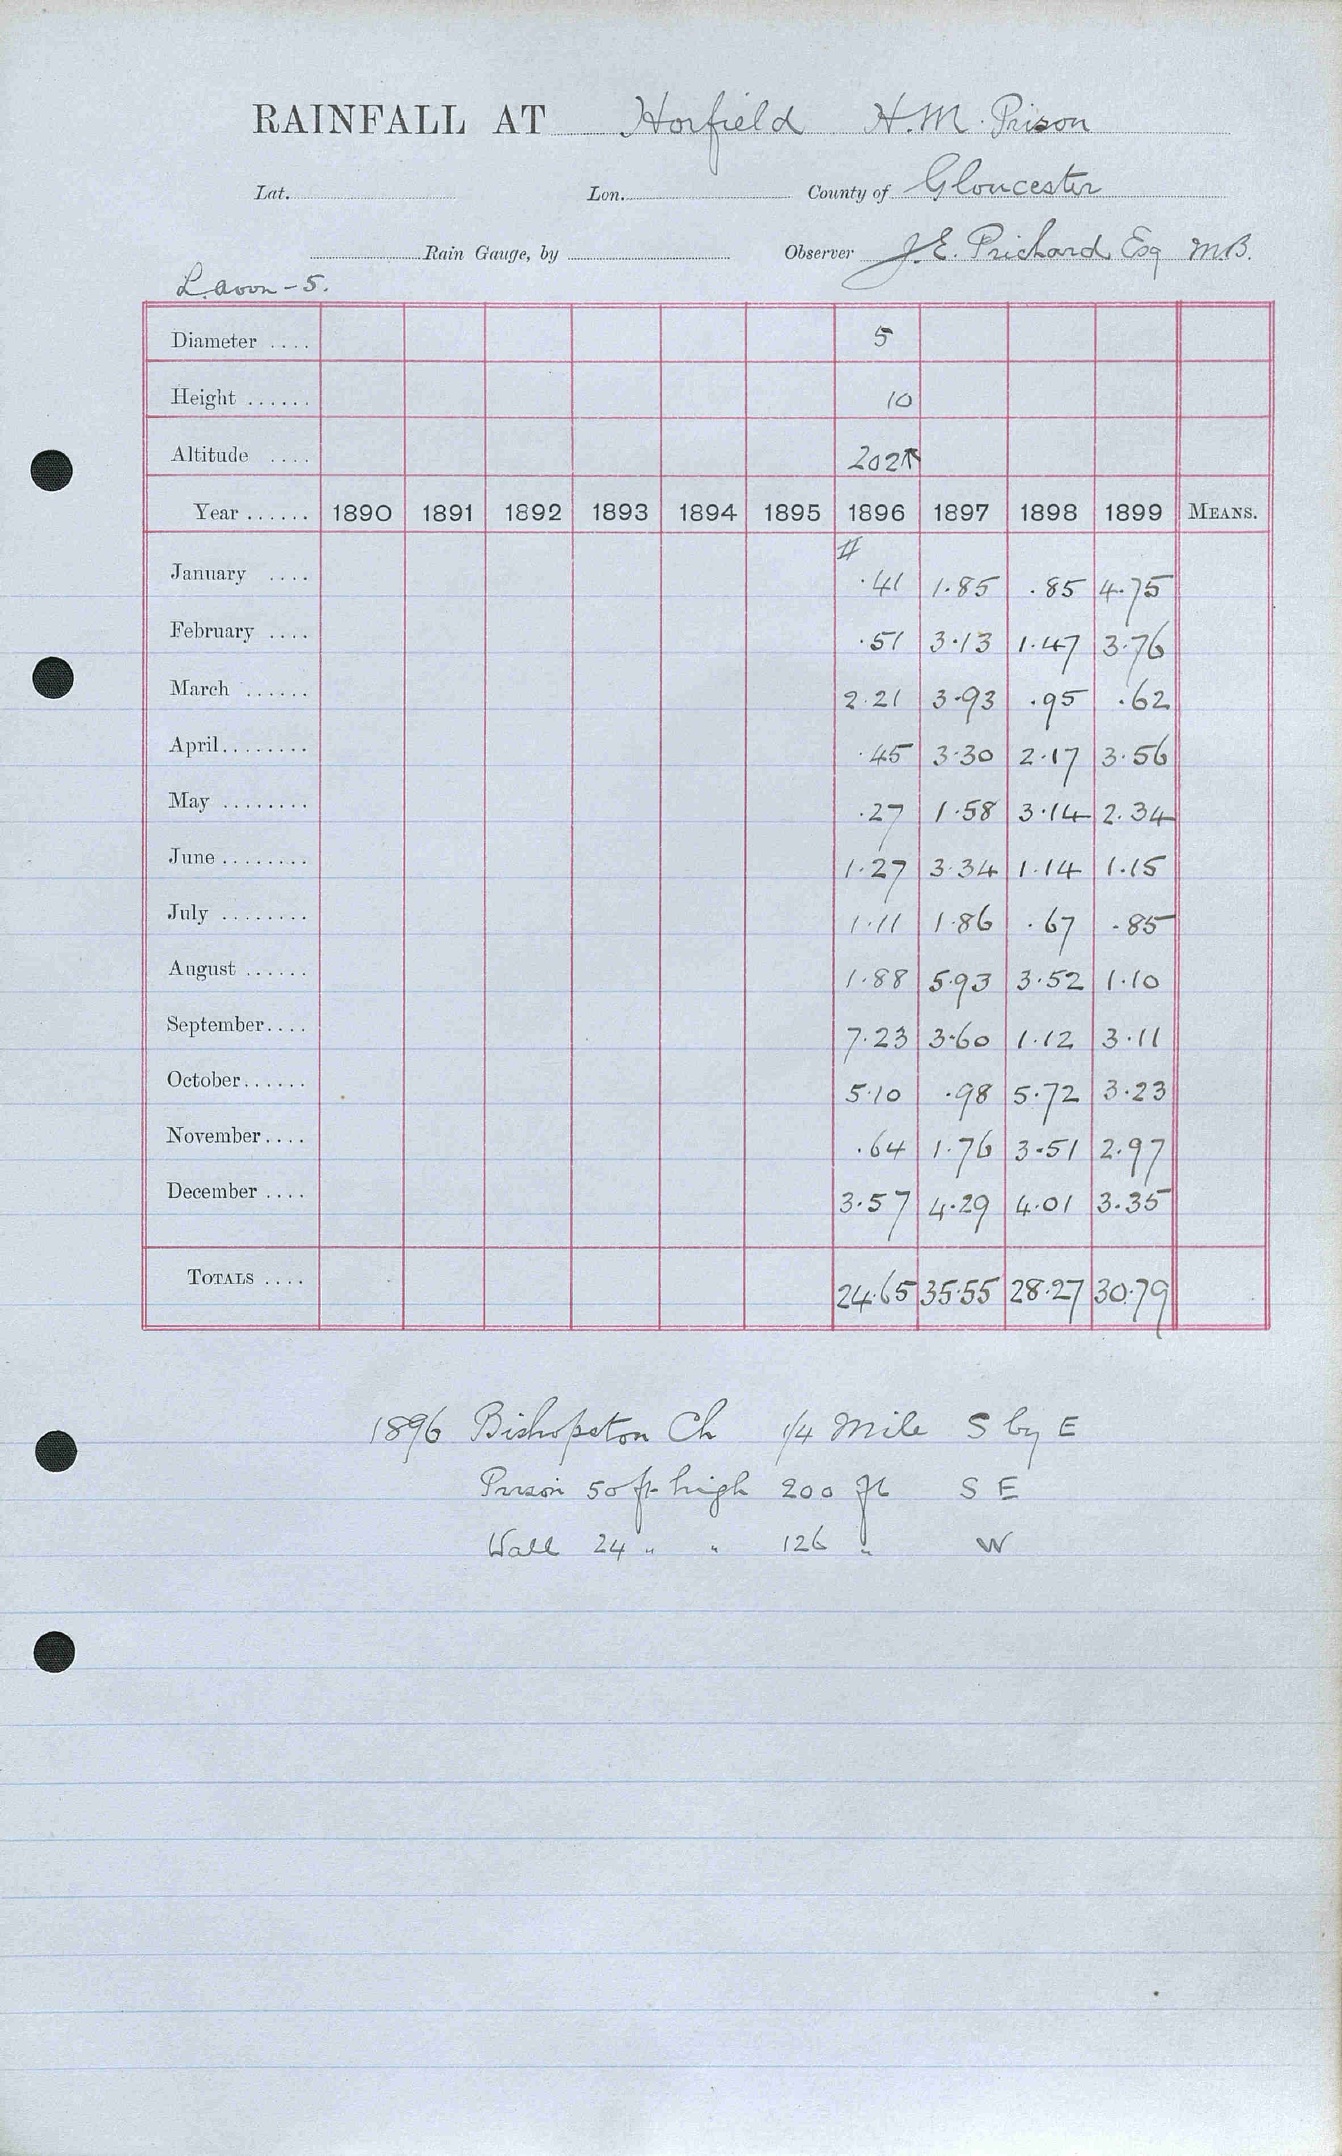 RAINFALL AT Horfield H.M. Prison
Lat. Lon. County of Gloucester
Rain Gauge, by Observer J.E. Prichard Esq M.B.
L. avon - 5.
Diameter .... 5
Height ...... 10
Altitude .... 202
Year ...... 1890 1891 1892 1893 1894 1895 1896 1897 1898 1899 MEANS.
#
January .... .41 1.85 .85 4.75
February .... .51 3.13 1.47 3.76
March ...... 2.21 3.93 .95 .62
April ........ .45 3.30 2.17 3.56
May ........ .27 1.58 3.14 2.34
June ........ 1.27 3.34 1.14 1.15
July ........ 1.11 1.86 .67 .85
August ...... 1.88 5.93 3.52 1.10
September.... 7.23 3.60 1.12 3.11
October...... 5.10 .98 5.72 3.23
November.... .64 1.76 3.51 2.97
December .... 3.57 4.29 4.01 3.35
TOTALS .... 24.65 35.55 28.27 30.79
1896 Bishopston Ch 1/4 Mile S by E
Prison 50 ft high 200 ft S E
Wall 24 " " 126 " W